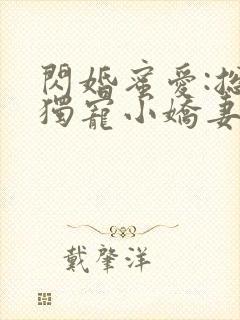 閃婚蜜愛:總
獨寵小嬌妻
戴肇洋